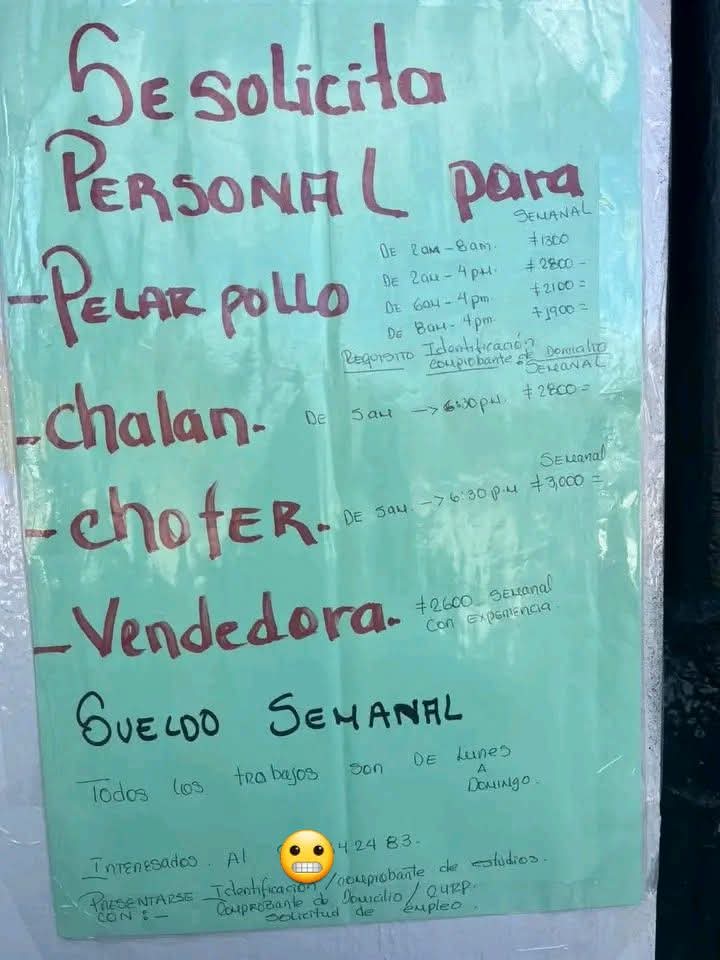 Se solicita
Personal para
SEMANAL
- Pelar pollo
De 2am - 8am. $1300
De 2am - 4pm. $2800 =
De 6am - 4pm $2100 =
De 8am - 4pm. $1900 =
Requisito Identificación
comprobante de Domicilio
SEMANAL
- Chalan. De 5am → 6:30 pm. $2800 =
Semanal
- Chofer. De 5am. → 6:30 p.m $3,000 =
- Vendedora. $2600 semanal
con experiencia.
Sueldo Semanal
Todos los trabajos son de Lunes
A
Domingo.
Interesados. Al 42483.
Presentarse Identificación / comprobante de estudios.
con: - Comprobante de Domicilio / CURP.
solicitud de empleo.